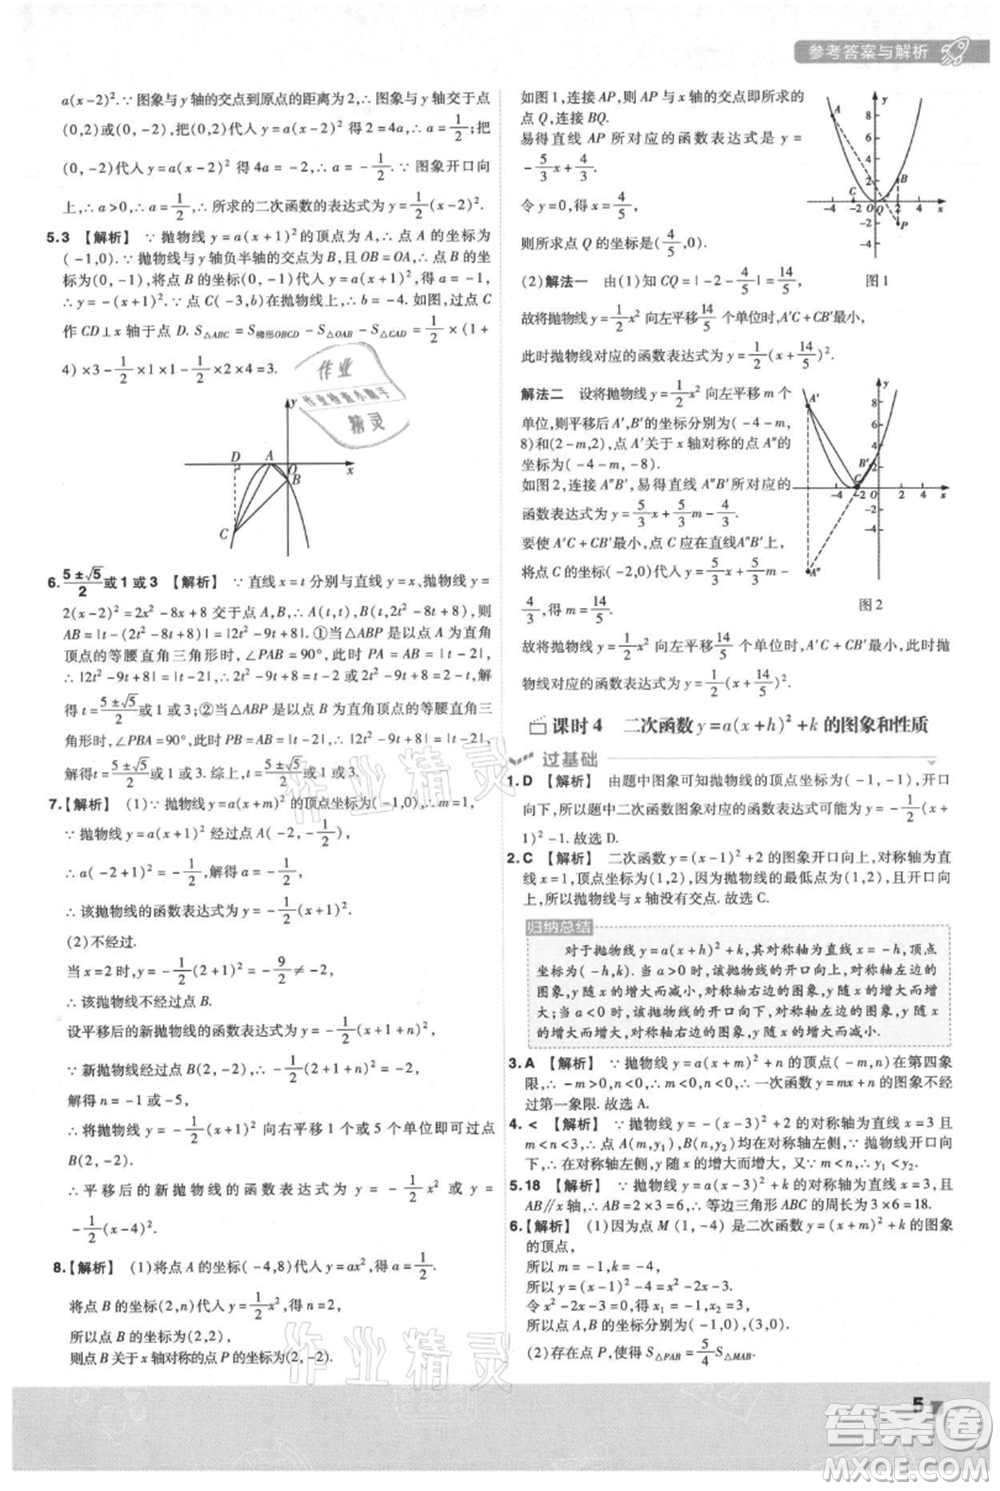 参考答案与解析
a(x-2)². ∵图象与 y 轴的交点到原点的距离为 2, ∴图象与 y 轴交于点
(0,2)或(0,-2), 把(0,2)代入 y=a(x-2)² 得 2=4a, ∴a=1/2; 把
(0,-2)代入 y=a(x-2)² 得 4a=-2, ∴a=-1/2. ∵图象开口向
上, ∴a>0, ∴所求的二次函数的表达式为 y=1/2(x-2)².
5.3 【解析】 ∵抛物线 y=a(x+1)² 的顶点为 A, ∴点 A 的坐标为
(-1,0). ∵抛物线与 y 轴负半轴的交点为 B, OB=OA, ∴a=-1,
∴y=-(x+1)². ∵点 C(-3,b)在抛物线上, ∴b=-4. 如图, 过点 C
作 CD⊥x 轴于点 D. S△ABC=S梯形OBCD-S△OAB-S△CAD=1/2×(1+
4)×3-1/2×1×1-1/2×2×4=3.
y
D A O x
B
C
6. (5±√5)/2 或 1 或 3 【解析】 ∵直线 x=t 分别与直线 y=x、抛物线 y=
2(x-2)²=2x²-8x+8 交于点 A,B, ∴A(t,t), B(t,2t²-8t+8), 则
AB=|t-(2t²-8t+8)|=|2t²-9t+8|. ①当△ABP 是以点 A 为直角
顶点的等腰直角三角形时, ∠PAB=90°, 此时 PA=AB=|t-2|,
∴|2t²-9t+8|=|t-2|, ∴2t²-9t+8=t-2 或 2t²-9t+8=2-t, 解
得 t=(5±√5)/2 或 1 或 3; ②当△ABP 是以点 B 为直角顶点的等腰直角
三角形时, ∠PBA=90°, 此时 PB=AB=|t-2|, ∴|2t²-9t+8|=|t-2|,
解得 t=(5±√5)/2 或 1 或 3. 综上, t=(5±√5)/2 或 1 或 3.
7.【解析】 (1)∵抛物线 y=a(x+m)² 的顶点坐标为(-1,0), ∴m=1,
∵抛物线 y=a(x+1)² 经过点 A(-2,-1/2),
∴a(-2+1)²=-1/2, 解得 a=-1/2,
∴该抛物线的函数表达式为 y=-1/2(x+1)².
(2)不经过.
∵当 x=2 时, y=-1/2(2+1)²=-9/2≠-2,
∴该抛物线不经过点 B.
设平移后的新抛物线的函数表达式为 y=-1/2(x+1-n)²,
∵新抛物线经过点 B(2,-2), ∴-2=-1/2(2+1-n)²,
解得 n=1 或 5,
∴将抛物线 y=-1/2(x+1)² 向右平移 1 个或 5 个单位即可过点
B(2,-2).
∴平移后的新抛物线的函数表达式为 y=-1/2x² 或 y=
-1/2(x-4)².
8.【解析】 (1)将点 A 的坐标(-4,8)代入 y=ax² 可得 a=1/2,
将点 B 的坐标(2,n)代入 y=1/2x², 得 n=2,
所以点 B 的坐标为(2,2),
则点 B 关于 x 轴对称的点 P 的坐标为(2,-2).
如图 1, 连接 AP, 则 AP 与 x 轴的交点即为所求的
点 Q, 连接 BQ.
易得直线 AP 所对应的函数表达式是 y=
-5/3x+4/3.
令 y=0, 得 x=4/5.
即所求点 Q 的坐标是(4/5,0).
图 1
(2)解法一 由(1)知 CQ=|-2-4/5|=14/5,
故将抛物线 y=1/2x² 向左平移14/5个单位时, A'C+CB'最小,
此时抛物线对应的函数表达式为 y=1/2(x+14/5)².
解法二 设将抛物线 y=1/2x² 向左平移 m 个
单位, 则平移后 A',B'的坐标分别为(-4-m,
8)和(2-m,2), 点 A'关于 x 轴对称的点 A″
的坐标为(-4-m,-8).
如图 2, 连接 A″B', 易得直线 A″B'所对应的
函数表达式为 y=5/3x+5/3m-4/3.
要使 A'C+CB'最小, 点 C 应在直线A″B'上,
将点 C 的坐标(-2,0)代入直线表达式,
得 m=14/5.
图 2
故将抛物线 y=1/2x² 向左平移14/5个单位时, A'C+CB'最小, 此时抛
物线对应的函数表达式为 y=1/2(x+14/5)².
课时 4 二次函数 y=a(x+h)²+k 的图象和性质
过基础
1.D 【解析】 由题中图象可知抛物线的顶点坐标为(-1,-1), 开口
向下, 所以题中二次函数图象对应的函数表达式可能为 y=-1/2(x+
1)²-1. 故选 D.
2.C 【解析】 二次函数 y=(x-1)²+2 的图象开口向上, 对称轴为直
线 x=1, 顶点坐标为(1,2), 因为抛物线的最低点为(1,2), 所以抛
物线与 x 轴没有交点. 故选 C.
归纳总结
对于抛物线 y=a(x+h)²+k, 其对称轴为直线 x=-h, 顶点
坐标为(-h,k). 当 a>0 时, 该抛物线的开口向上, 对称轴左边的
图象, y 随 x 的增大而减小, 对称轴右边的图象, y 随 x 的增大而增
大; 当 a<0 时, 该抛物线的开口向下, 对称轴左边的图象, y 随 x 的
增大而增大, 对称轴右边的图象, y 随 x 的增大而减小.
3.A 【解析】 ∵抛物线 y=(x+m)²+n 的顶点(-m,n)在第四象
限, ∴-m>0, n<0, ∴m<0, ∴一次函数 y=mx+n 的图象不经
过第一象限. 故选 A.
4.< 【解析】 ∵抛物线 y=-(x-3)²+2 的对称轴为直线 x=3 且
m<n<3, ∴点 A(m,y₁), B(n,y₂)均在对称轴左侧, ∵抛物线开口向
下, ∴在对称轴左侧, y 随 x 的增大而增大, ∵m<n, ∴y₁<y₂.
5.18 【解析】 ∵抛物线 y=a(x-3)²+k 的对称轴为直线 x=3, 且
AB∥x 轴, ∴AB=2×3=6, ∴等边三角形 ABC 的周长为 3×6=18.
6.【解析】 (1)因为点 M(1,-4)是二次函数 y=(x+m)²+k 的图象
的顶点,
所以 m=-1, k=-4.
所以 y=(x-1)²-4=x²-2x-3.
令 x²-2x-3=0, 解得 x₁=-1, x₂=3.
所以点 A,B 的坐标分别为(-1,0),(3,0).
(2)存在点 P, 使 S△PAB=5/4S△MAB.
5
作业
作业检查小助手
精灵
作业精灵
作业精灵
答案圈
MXQE.COM